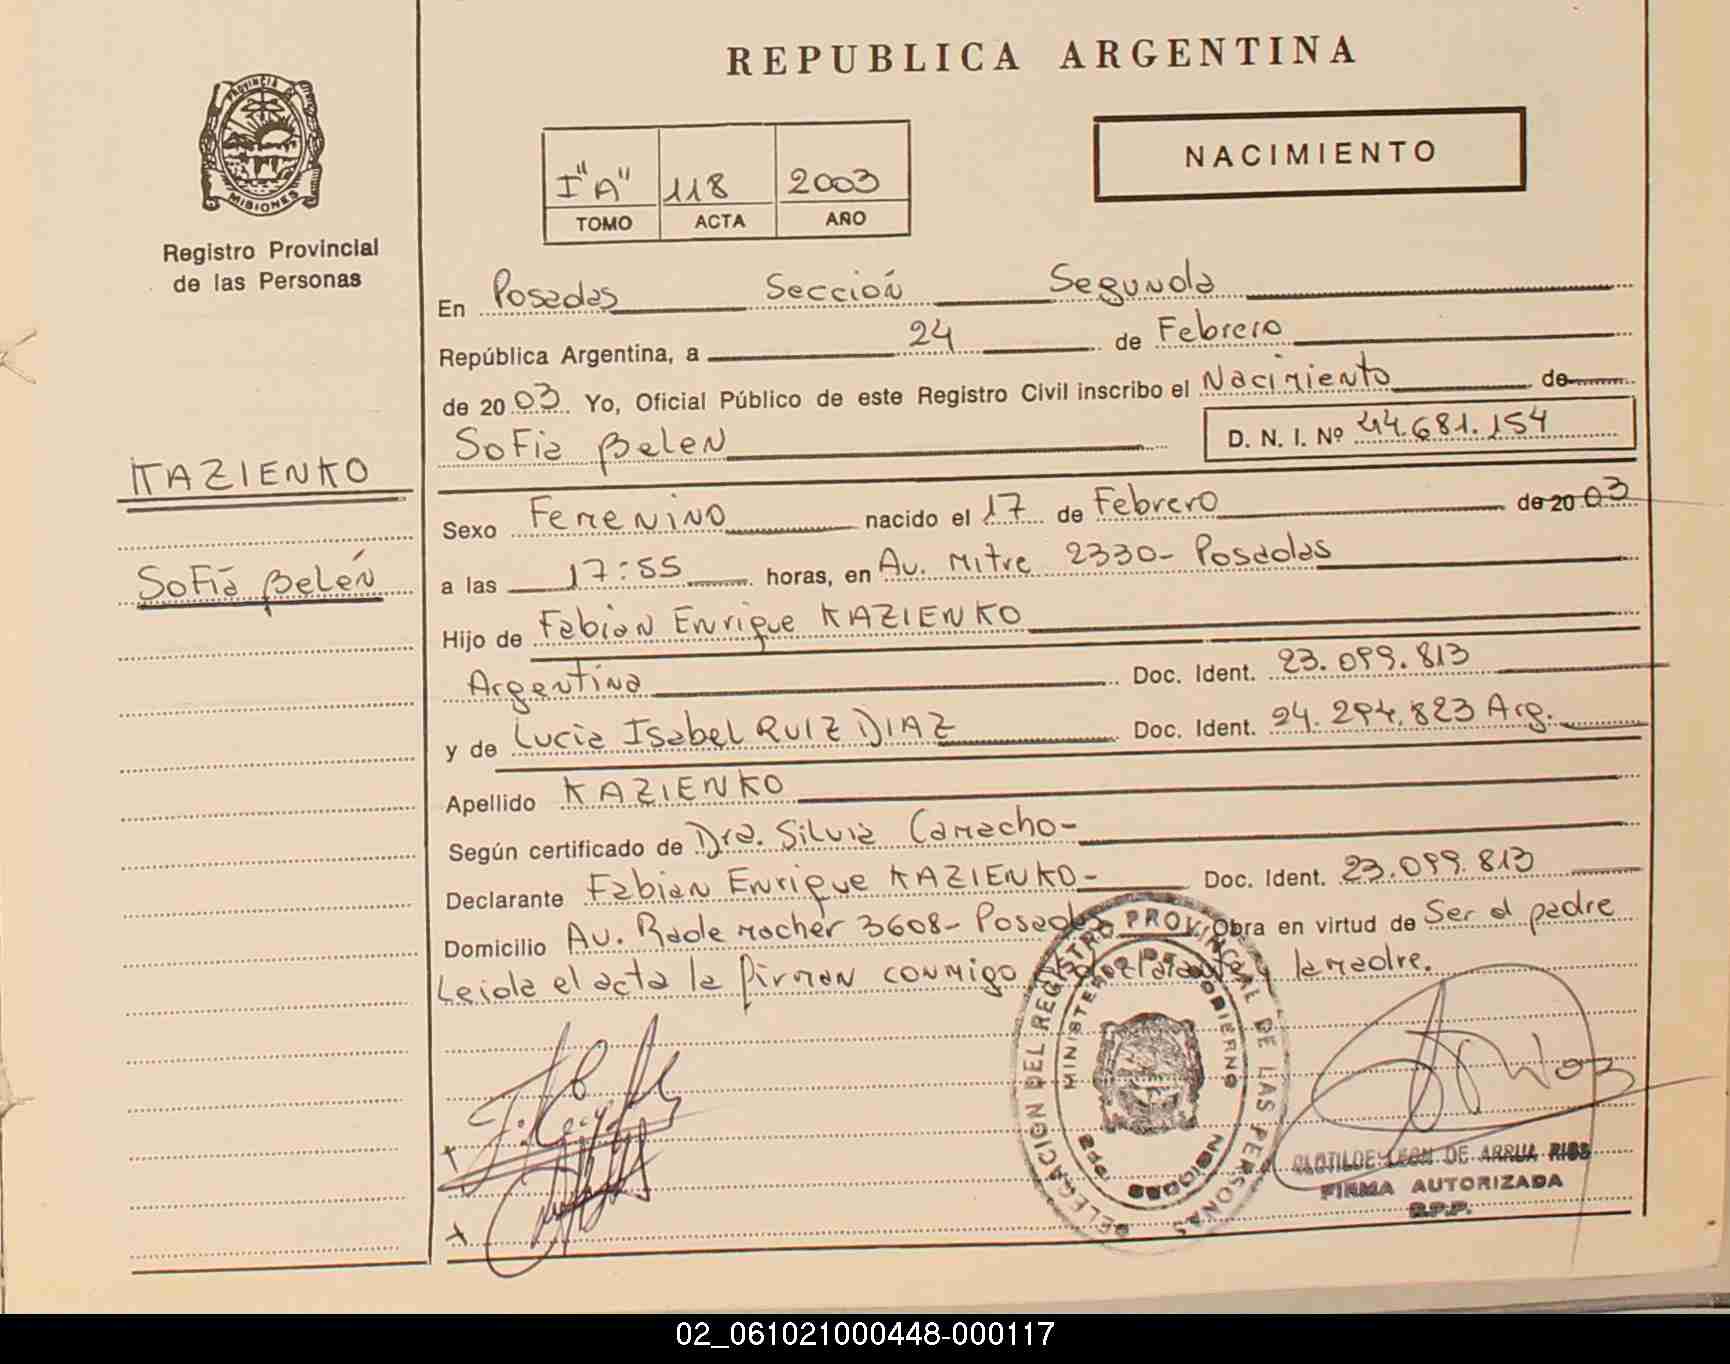 REPUBLICA ARGENTINA
PROVINCIA DE
MISIONES
Registro Provincial
de las Personas
NACIMIENTO
I "A" 118 2003
TOMO ACTA AÑO
En Posadas Sección Segunda
República Argentina, a 24 de Febrero
de 2003 Yo, Oficial Público de este Registro Civil inscribo el Nacimiento de
Sofia Belen D. N. I. Nº 44.681.154
KAZIENKO
Sofía Belén
Sexo Femenino nacido el 17 de Febrero de 2003
a las 17:55 horas, en Av. Mitre 2330- Posadas
Hijo de Fabian Enrique KAZIENKO
Argentina Doc. Ident. 23.099.813
y de Lucia Isabel RUIZ DIAZ Doc. Ident. 24.294.823 Arg.
Apellido KAZIENKO
Según certificado de Dra. Silvia Camacho-
Declarante Fabian Enrique KAZIENKO- Doc. Ident. 23.099.813
Domicilio Av. Rademacher 3608- Posadas Obra en virtud de Ser el padre
Leida el acta la firman conmigo el declarante y la madre.
DELEGACION DEL REGISTRO PROVINCIAL DE LAS PERSONAS
MINISTERIO DE GOBIERNO
MISIONES
CLOTILDE LEON DE ARRUA RIOS
FIRMA AUTORIZADA
R.P.P.
02_061021000448-000117